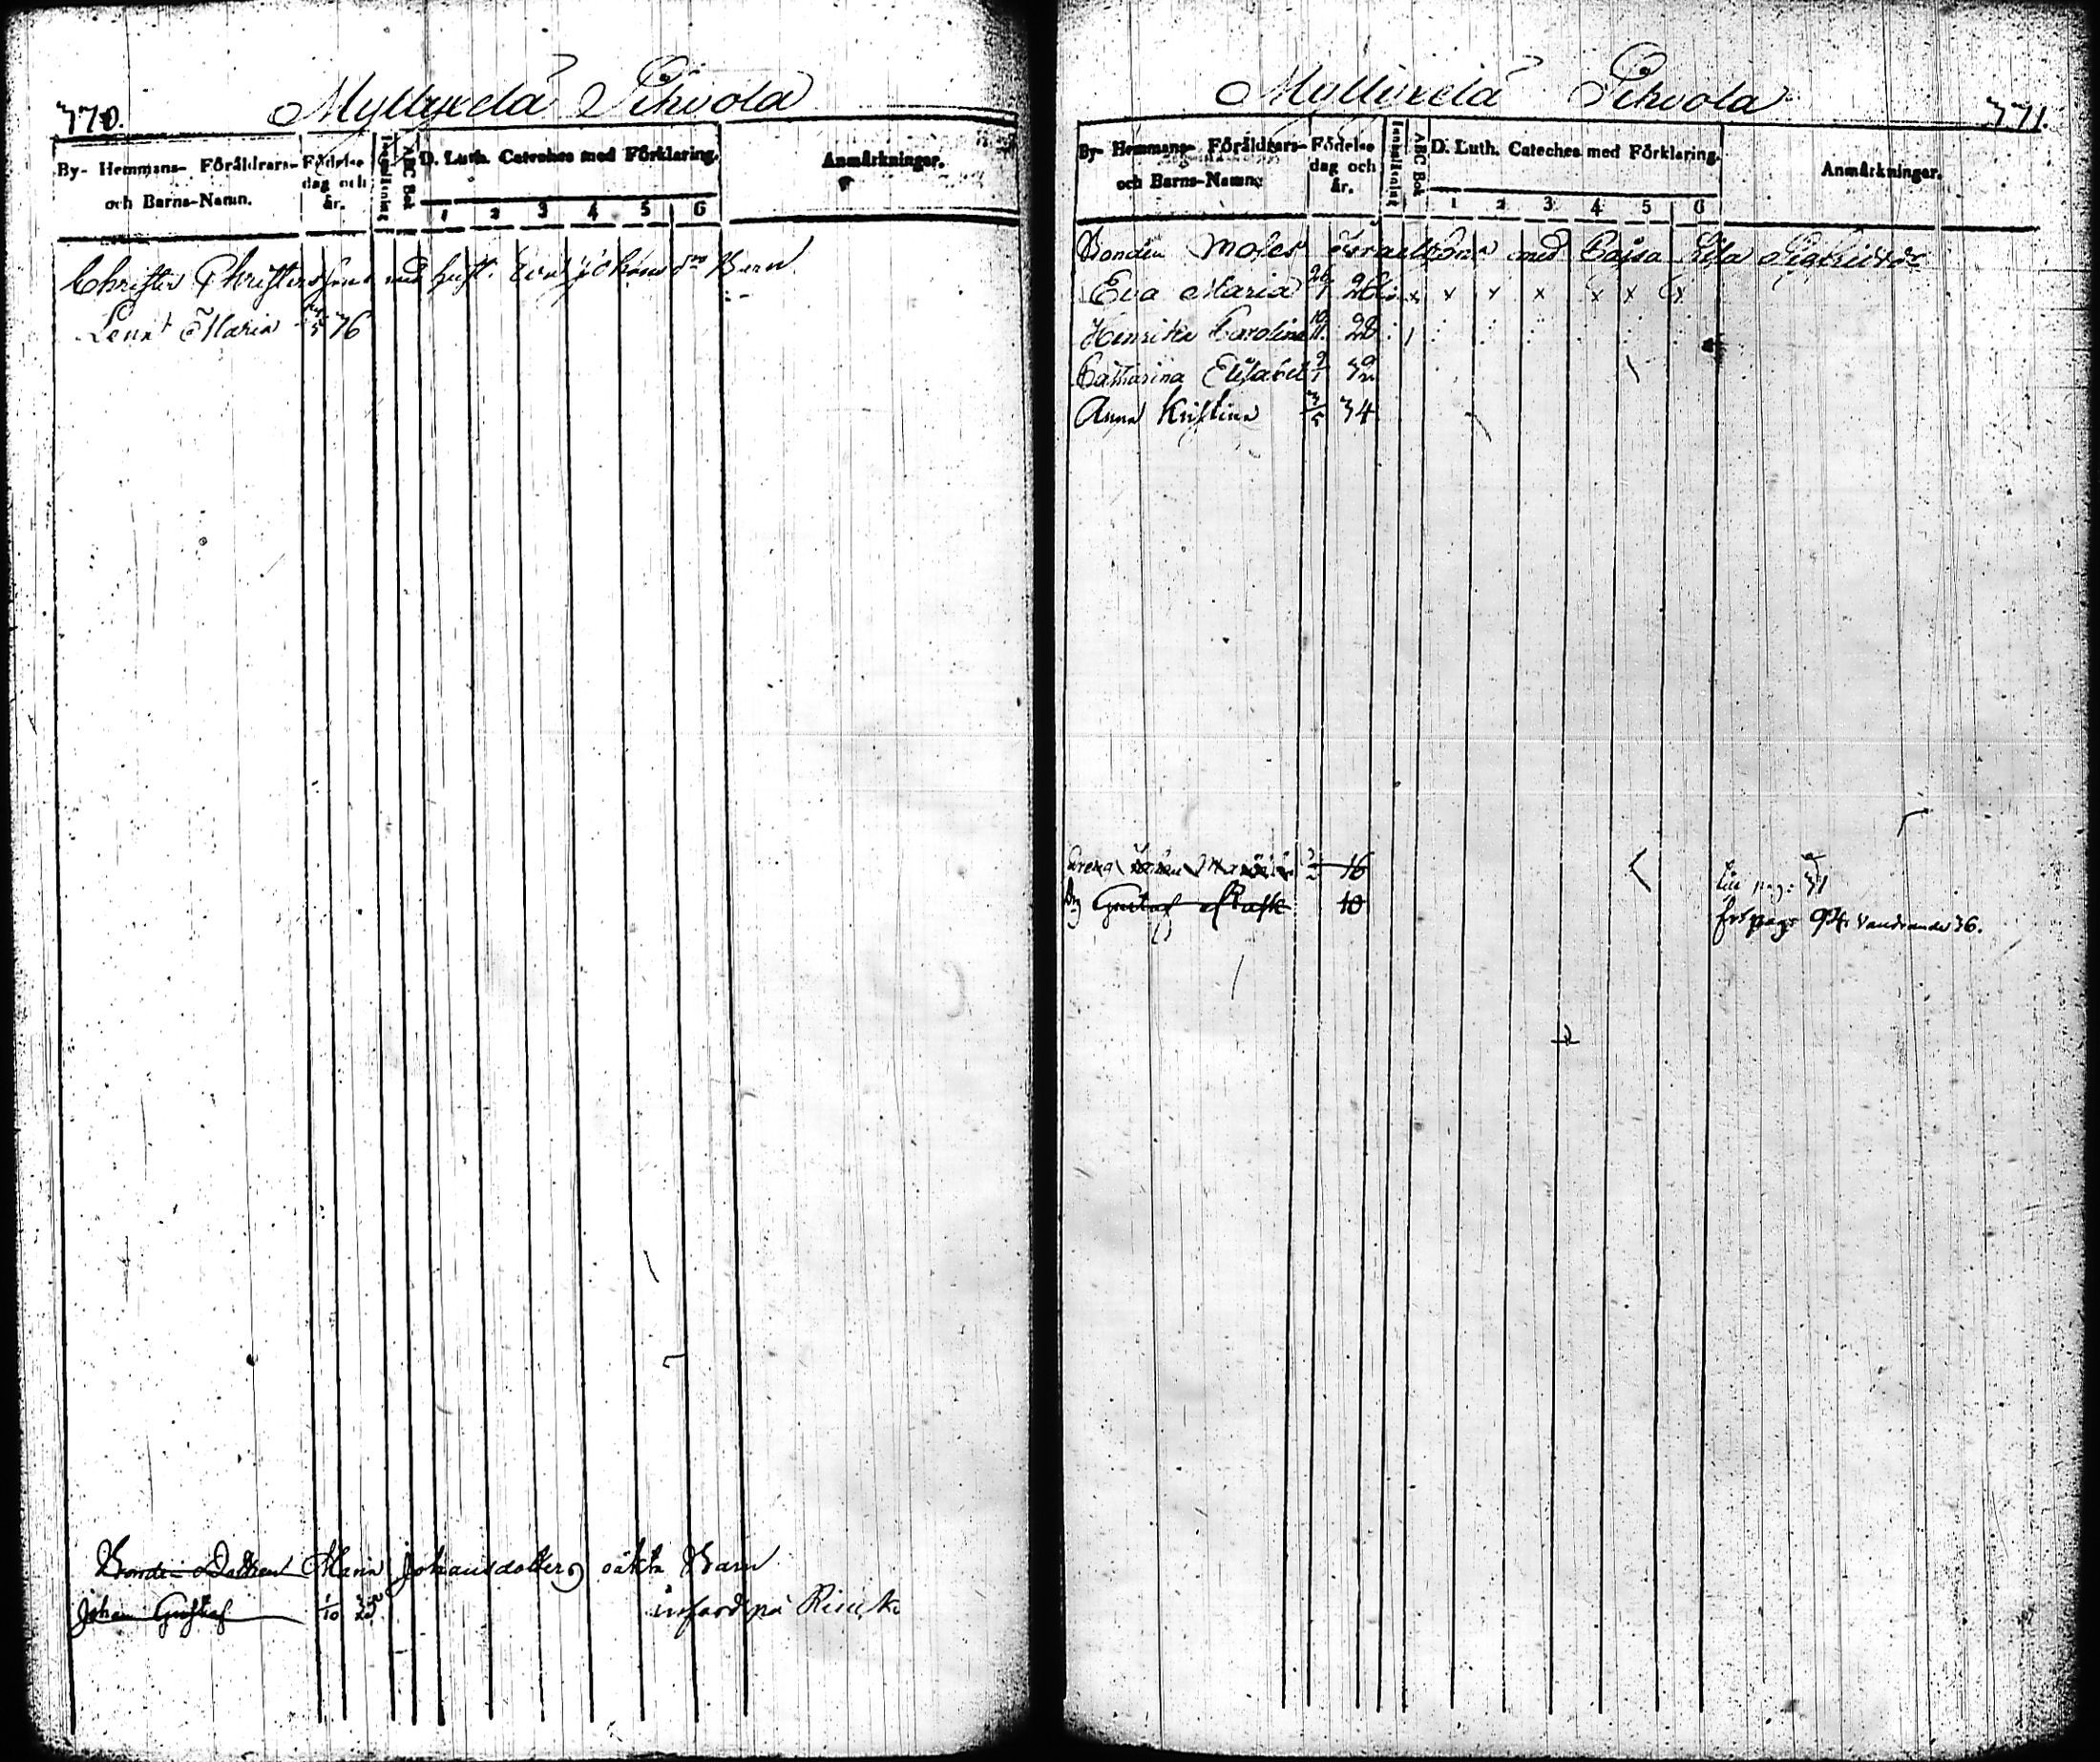 370.
Myllyxelä Pihvola
By- Hemmans- Föräldrars- och Barns-Namn.
Födelse dag och år.
Innanläsning
ABC Bok
D. Luth. Cateches med Förklaring.
1 2 3 4 5 6
Anmärkningar.
Christer Christersson med hust. Eva Johans dr Barn
Lena Maria 5 36
Bonde Dottren Maria Johansdotters oäkta Barn
Johan Gustaf 1/10 införd på
Myllyxelä Pihvola
371.
By- Hemmans- Föräldrars- och Barns-Namn.
Födelse dag och år.
Innanläsning
ABC Bok
D. Luth. Cateches med Förklaring.
1 2 3 4 5 6
Anmärkningar.
Bonden Moses Israelsson med Caisa Lisa
Eva Maria 26/1 26 x x x x x x x
Henrika Carolina 10/11 28
Catharina Elisabet 9/1 32
Anna Kristina 3/5 34
Dreng 16 pag: 31
Dg Gustaf Rask 10 frå pag: 94 vandrande 36.